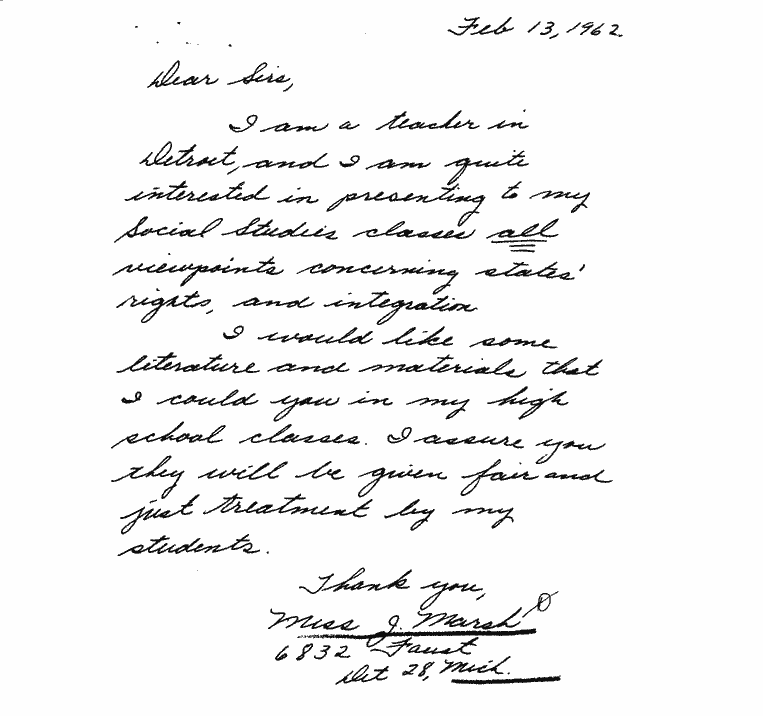 Feb 13, 1962
Dear Sirs,
I am a teacher in
Detroit, and I am quite
interested in presenting to my
Social Studies classes all
viewpoints concerning states'
rights, and integration
I would like some
literature and materials that
I could you in my high
school classes. I assure you
they will be given fair and
just treatment by my
students.
Thank you,
Miss J. Marsh
6832 Faust
Det 28, Mich.